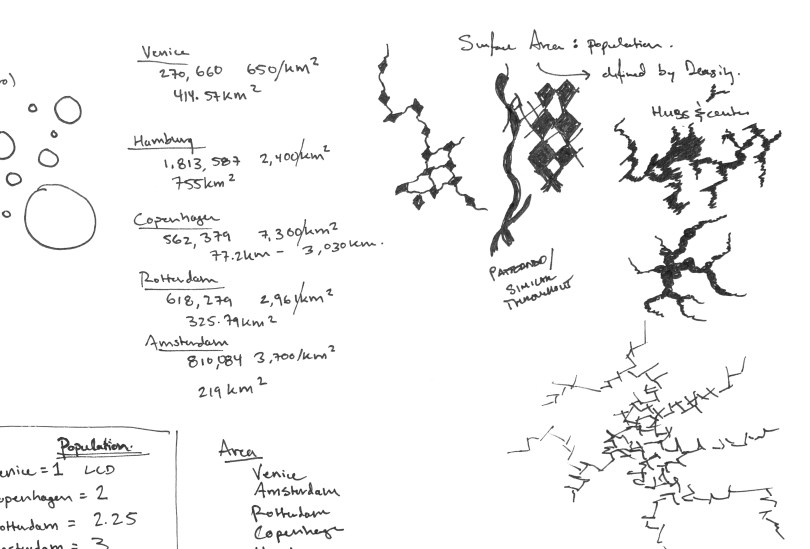 o)
Venice
270,660 650/km²
414.57km²
Hamburg
1,813,587 2,400/km²
755km²
Copenhagen
562,379 7,300/km²
77.2km - 3,030km.
Rotterdam
618,279 2,961/km²
325.79km²
Amsterdam
810,084 3,700/km²
219km²
Surface Area : population.
defined by Density.
Hubs & center
PATTERNED/
SIMILAR
THROUGHOUT
Population.
enice = 1 LCD
openhagen = 2
otterdam = 2.25
msterdam = 3
Area
Venice
Amsterdam
Rotterdam
Copenhage